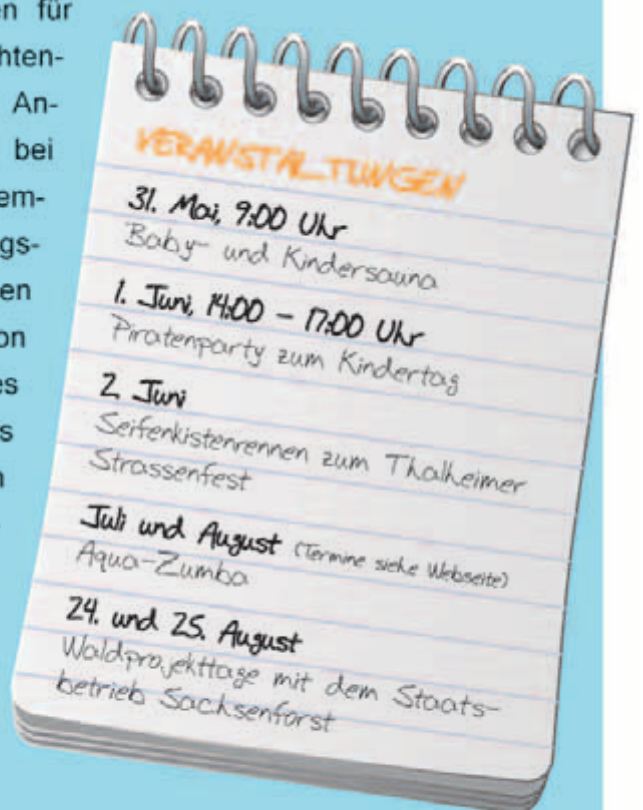 en für
hten-
An-
bei
em-
gs-
en
on
es
s
VERANSTALTUNGEN
31. Mai, 9:00 Uhr
Baby- und Kindersauna
1. Juni, 14:00 - 17:00 Uhr
Piratenparty zum Kindertag
2. Juni
Seifenkistenrennen zum Thalheimer
Strassenfest
Juli und August (Termine siehe Webseite)
Aqua-Zumba
24. und 25. August
Waldprojekttage mit dem Staats-
betrieb Sachsenforst